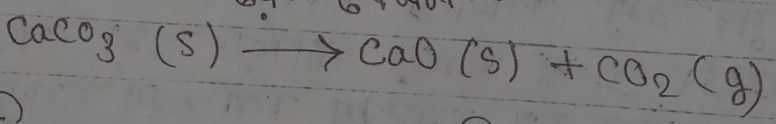 CaCO3 (s) ⟶ CaO (s) + CO2 (g)